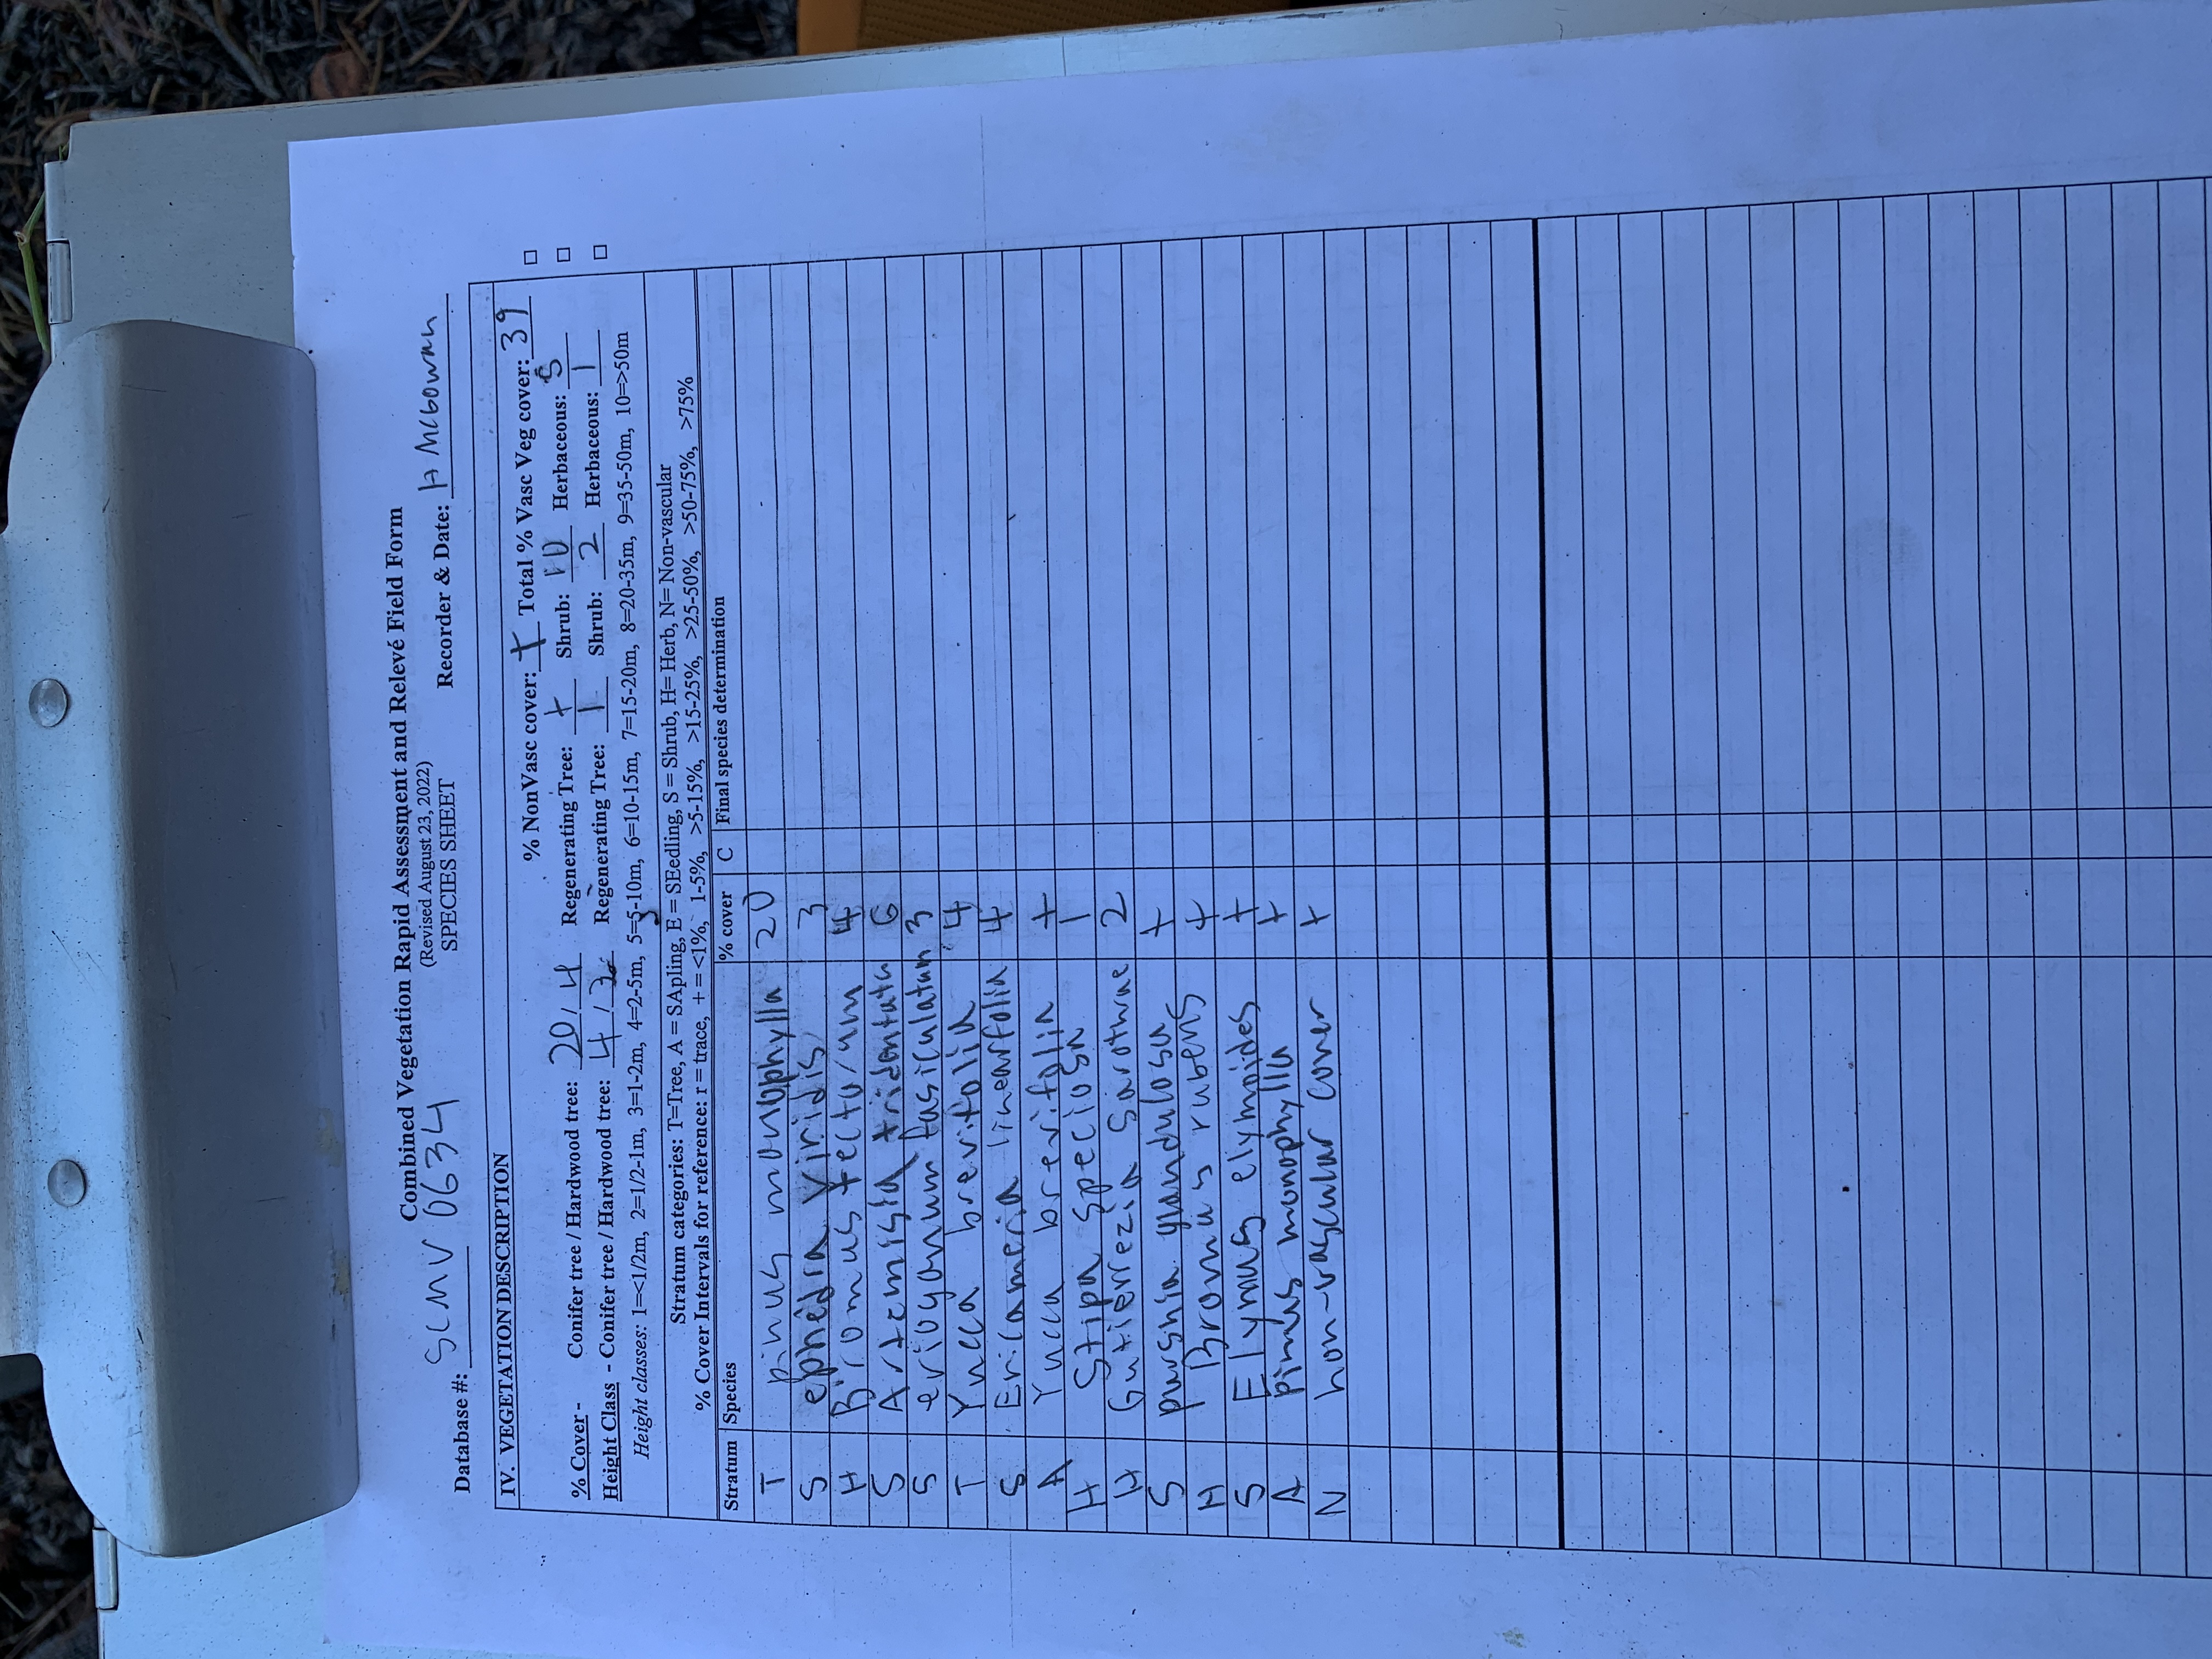 Combined Vegetation Rapid Assessment and Relevé Field Form
(Revised August 23, 2022)
SPECIES SHEET
Database #: SCNV 0634 Recorder & Date: H McGowan
IV. VEGETATION DESCRIPTION
% NonVasc cover: + Total % Vasc Veg cover: 39
% Cover - Conifer tree / Hardwood tree: 20 / 4 Regenerating Tree: + Shrub: 10 Herbaceous: 5
Height Class - Conifer tree / Hardwood tree: 4 / 3 Regenerating Tree: 1 Shrub: 2 Herbaceous: 1
Height classes: 1=<1/2m, 2=1/2-1m, 3=1-2m, 4=2-5m, 5=5-10m, 6=10-15m, 7=15-20m, 8=20-35m, 9=35-50m, 10=>50m
Stratum categories: T=Tree, A = SApling, E = SEedling, S = Shrub, H= Herb, N= Non-vascular
% Cover Intervals for reference: r = trace, + = <1%, 1-5%, >5-15%, >15-25%, >25-50%, >50-75%, >75%
Stratum Species % cover C Final species determination
T pinus monophylla 20
S ephedra viridis 3
H Bromus tectorum 4
S Artemisia tridentata 6
S eriogonum fasiculatum 3
T Yucca brevifolia 4
S Ericameria linearfolia 4
A Yucca brevifolia +
H Stipa speciosa 1
H Gutierrezia Sarothrae 2
S purshia glandulosa +
H Bromus rubens +
S Elymus elymoides +
A pinus monophylla +
N non-vascular cover +